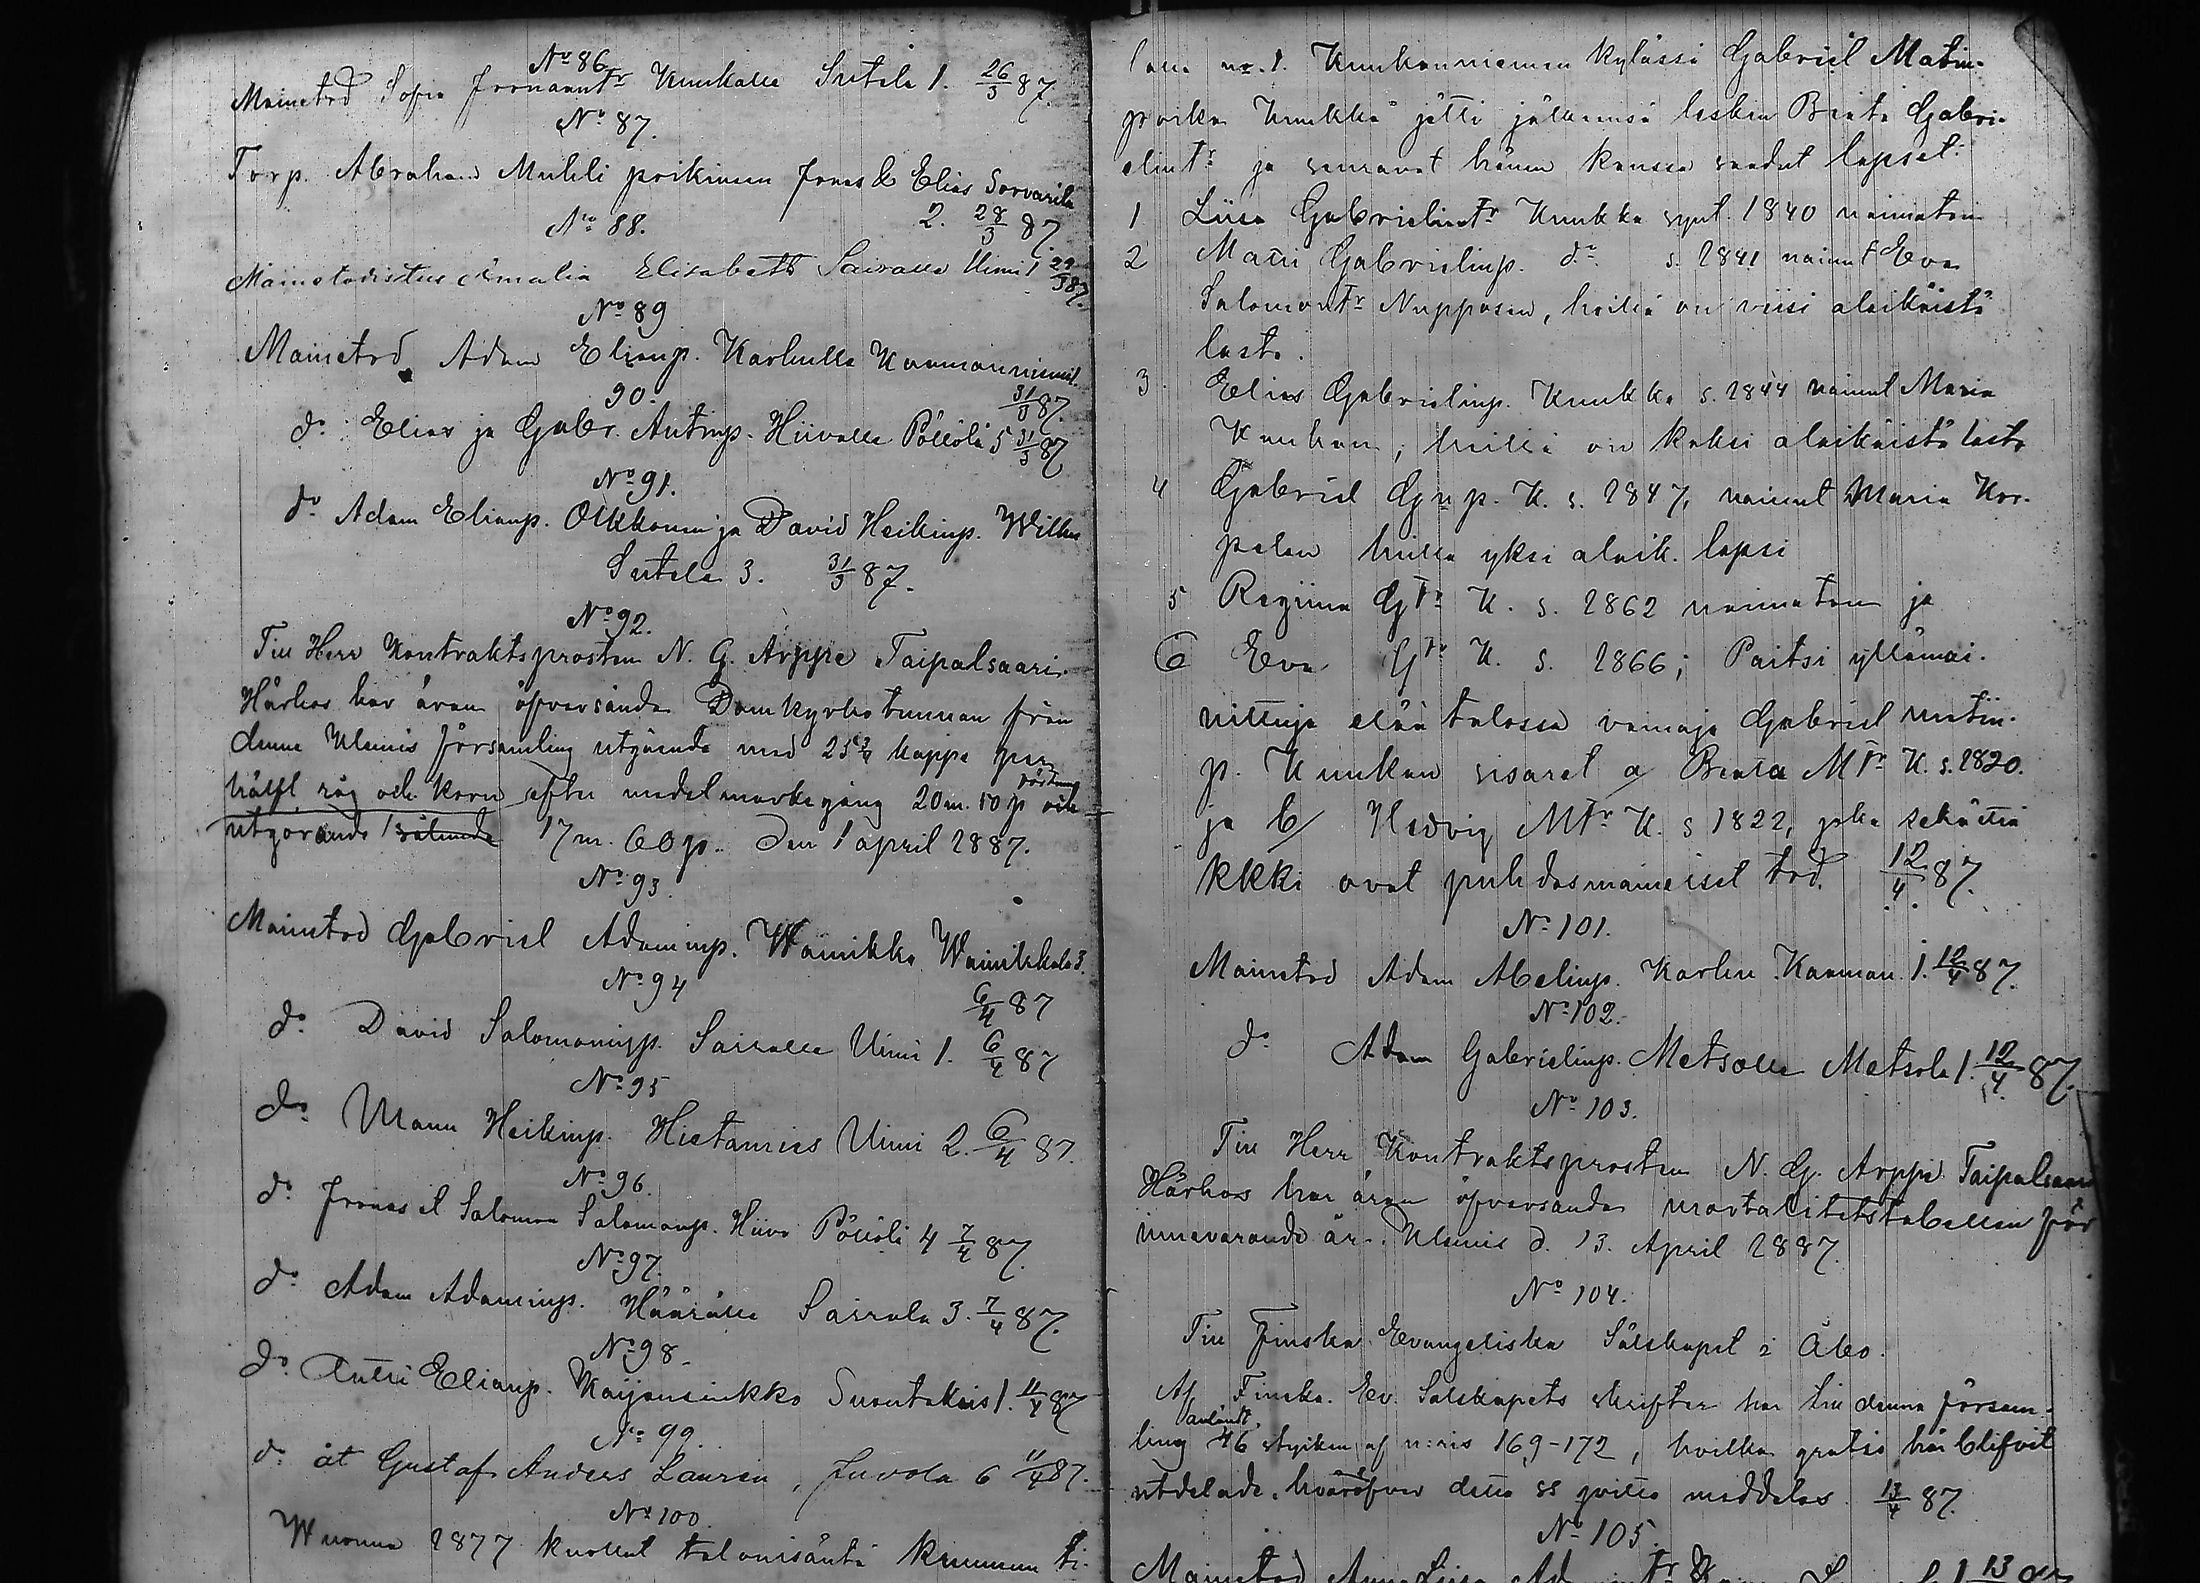 No 86.
Mainetod Sofia Joonaantr Kunkalle Sutela 1. 26/3 87.
No 87.
Torp. Abraham Muhli poikineen Jonas & Elias Sorvarila
2. 28/3 87
No 88.
Mainetodistus Amalia Elisabeth Sairalle Uimi 1 29/3 87.
No 89
Mainetod. Adam Elianp. Karhulle Kunmanniemi
31/3 87.
90.
do Elias ja Gabr. Antinp. Hiivalle Pöllölä 5 31/3 87
No 91.
do Adam Elianp. Olkkonen ja David Heikinp. Wilku
Sutela 3. 31/3 87.
No 92.
Till Herr Kontraktsprosten N. G. Arppe Taipalsaari.
Härhos har äran öfversända Domkyrkotunnan från
denna Klemis församling utgående med 25 3/4 kappe per
hälft råg och korn efter medelmarkegång 20 m. 50 p och
utgörande sålunda 17 m. 60 p. Den 1 april 1887.
No 93.
Mainetod Gabriel Adaminp. Wainikka Wainikkala 3.
6/4 87
No 94
do David Salomoninp. Sairalle Uimi 1. 6/4 87
No 95
do Manu Heikinp. Hietamies Uimi 2. 6/4 87.
No 96.
do Joonas et Salomon Salomonp. Hiiva Pöllölä 4 7/4 87.
No 97.
do Adam Adaminp. Häärälle Sairala 3. 7/4 87.
No 98.
do Antti Elianp. Kaijansinkko Suontakais 1. 11/4 87
No 99.
do åt Gustaf Anders Lauren, Juvola 6 11/4 87.
No 100.
Wuonna 1877 kuollut talonisäntä kruunun ti-
lalla no. 1. Kunkanniemen kylässä Gabriel Matin-
poika Kunkka jätti jälkeensä lesken Beata Gabri-
elintr ja seuraavat hänen kanssa saadut lapset:
1 Liisa Gabrielintr Kunkka synt. 1840 naimaton
2 Matti Gabrielinp. do s. 1841 nainut Eva
Salomontr Nupposen, heillä on viisi alaikäistä
lasta.
3 Elias Gabrielinp. Kunkka s. 1844 nainut Maria
Kauhan, heillä on kaksi alaikäistä lasta
4 Gabriel G n p. K. s. 1847, nainut Maria Kor-
pelan heillä yksi alaik. lapsi
5 Regiina G Tr K. s. 1862 naimaton ja
6 Eva G Tr K. s. 1866; Paitsi yllämai-
nittuja elää talossa vainaja Gabriel Matin-
p. Kunkan sisaret a/ Beata M Tr K. s. 1820.
ja b/ Hedvig M Tr K. s 1822, jotka
kkki ovat puhdasmaineiset tod. 12/4 87.
No 101.
Mainetod Adam Abelinp. Karhu Kanman. 1. 12/4 87.
No 102.
do Adam Gabrielinp. Metsolle Metsola 1. 12/4 87.
No 103.
Till Herr Kontraktsprosten N. G. Arppe Taipalsaari
Härhos har äran öfversända mortalitetstabellen för
innevarande år. Klemis d. 13. April 1887.
No 104.
Till Finska Evangeliska Sälskapet i Åbo.
Af Finska Ev. Sälskapets skrifter har till denna försam-
ling anländt 46 stycken af n:ris 169-172, hvilka gratis här blifvit
utdelade. hvaröfver detta ss qvitto meddelas. 13/4 87.
No 105.
Mainetod Anna Liisa Adamintr